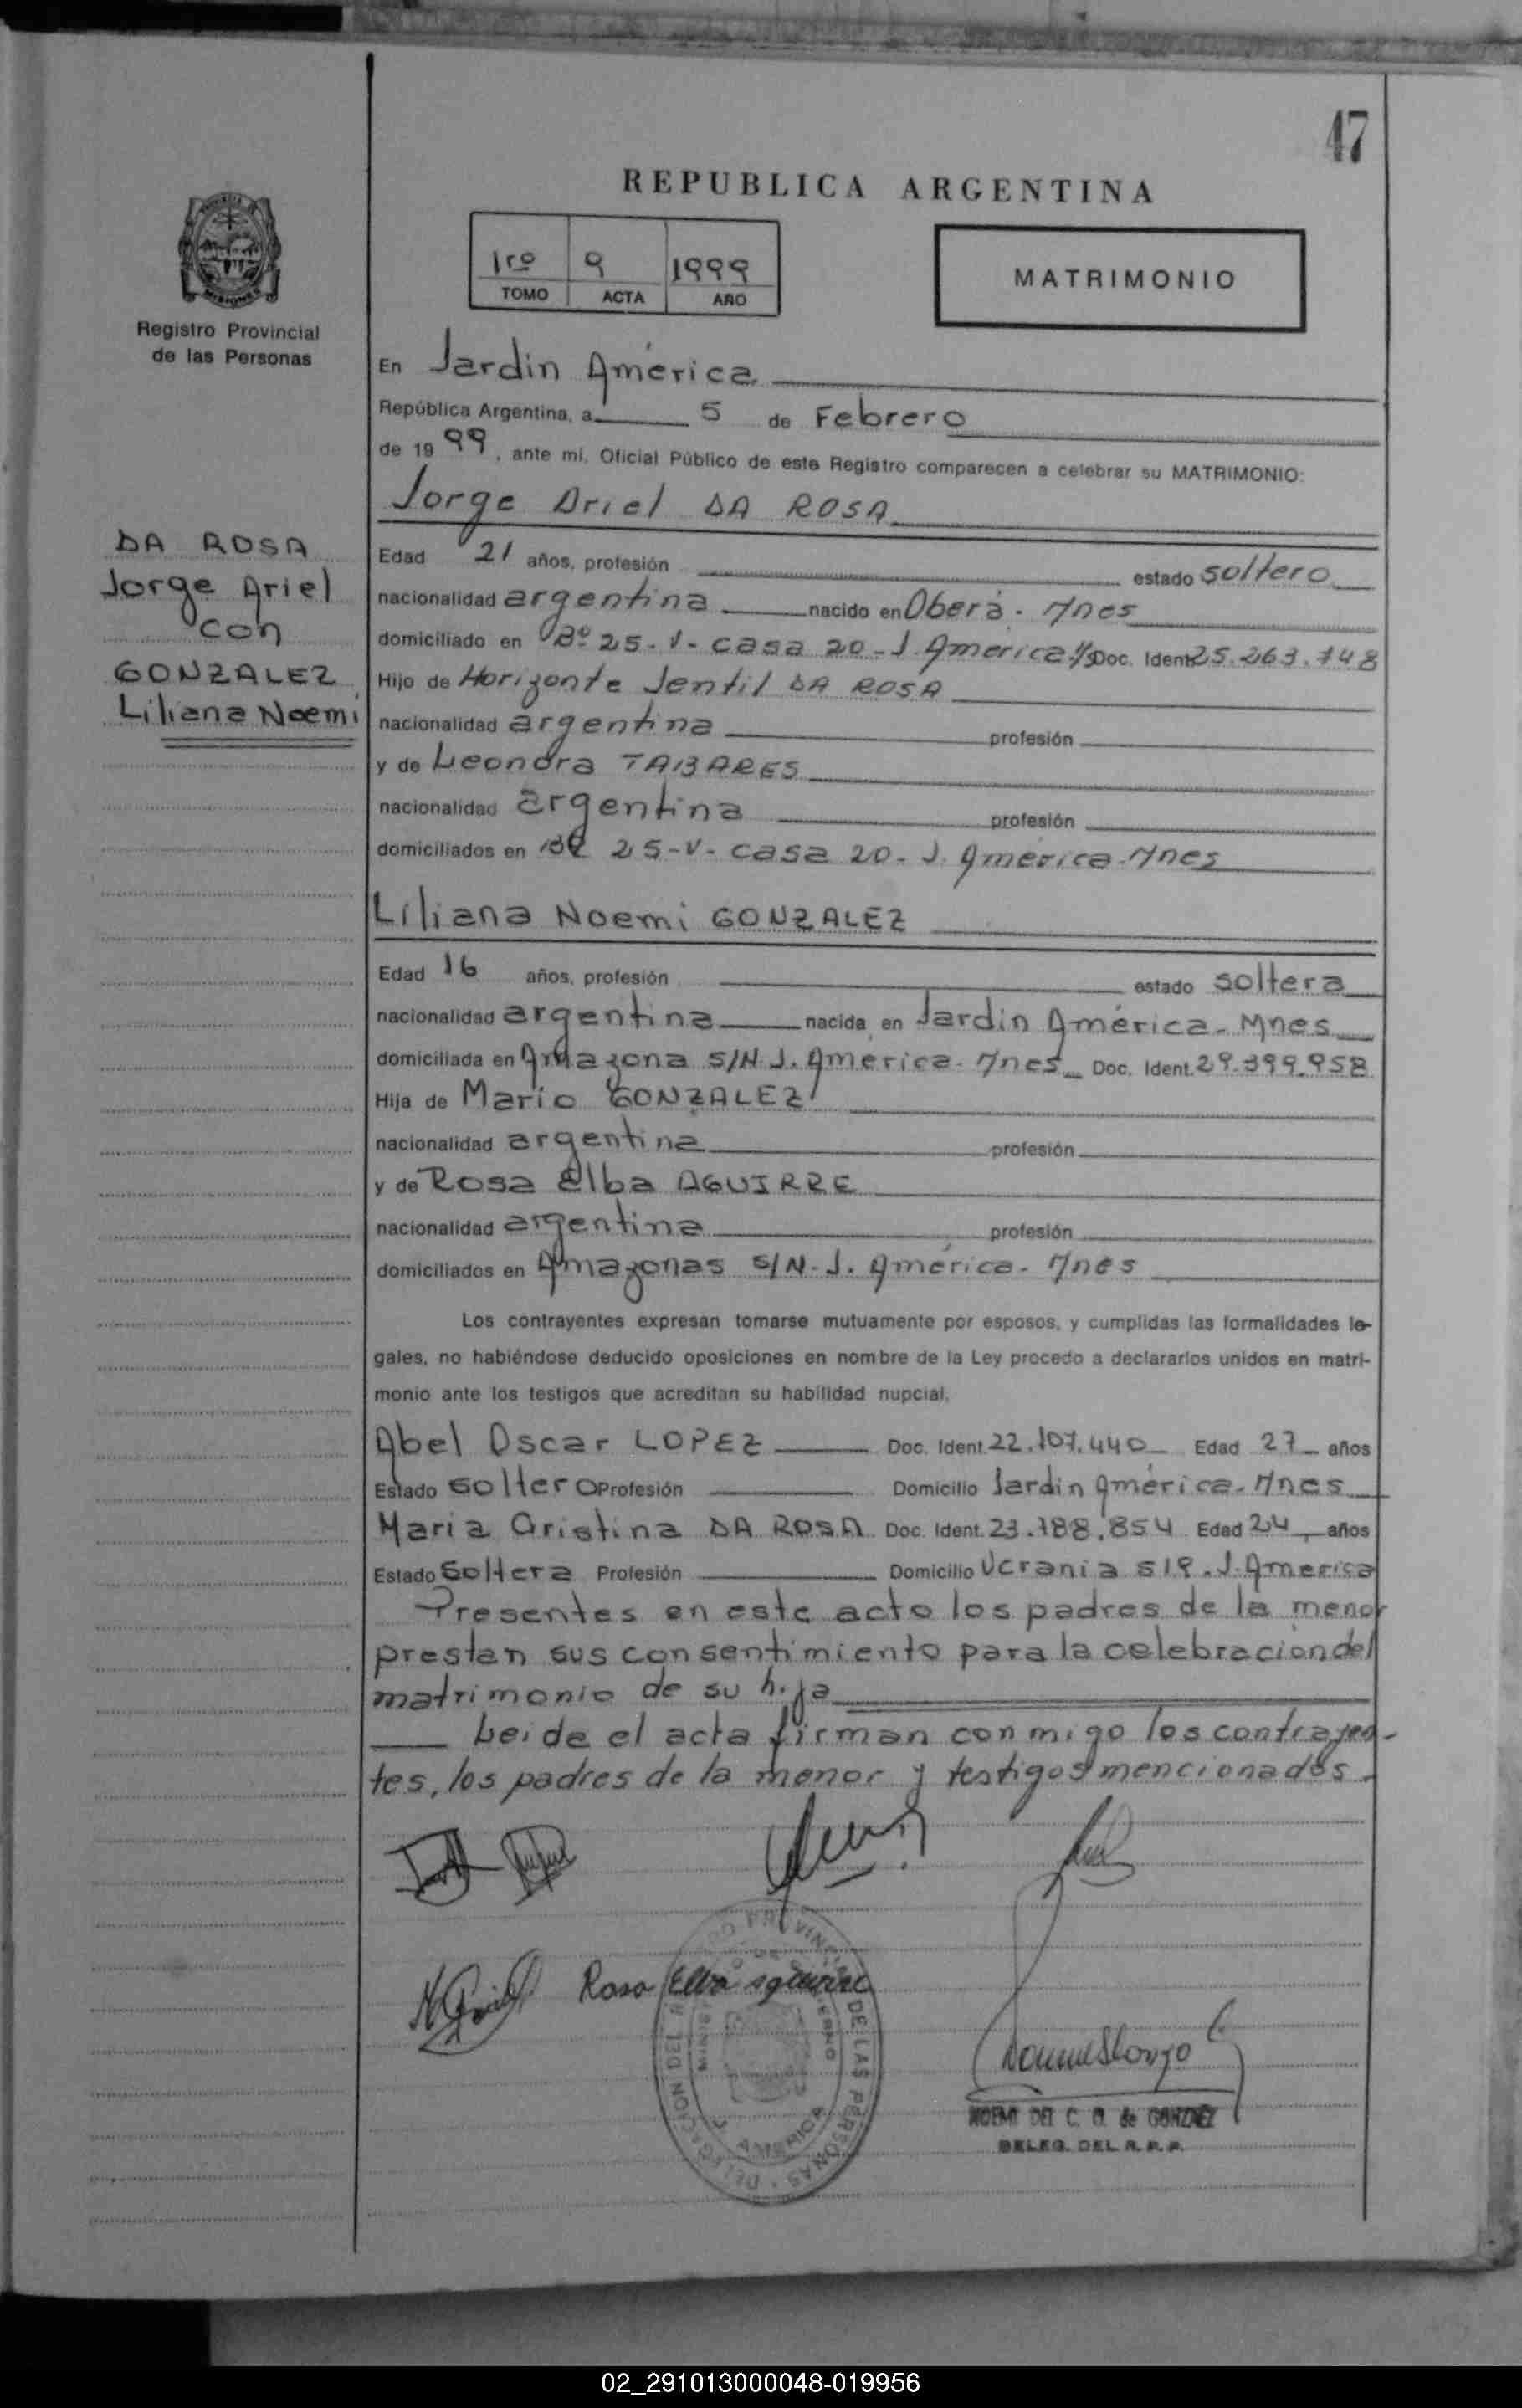 47
REPUBLICA ARGENTINA
1ro 9 1999
TOMO ACTA AÑO
MATRIMONIO
Registro Provincial
de las Personas
DA ROSA
Jorge Ariel
con
GONZALEZ
Liliana Noemi
En Jardin América
República Argentina, a 5 de Febrero
de 19 99, ante mí, Oficial Público de este Registro comparecen a celebrar su MATRIMONIO:
Jorge Ariel DA ROSA
Edad 21 años, profesión estado soltero
nacionalidad argentina nacido en Oberá. Mnes
domiciliado en Bº 25-V- casa 20-J. América Doc. Ident. 25.263.748
Hijo de Horizonte Jentil DA ROSA
nacionalidad argentina profesión
y de Leonora TABARES
nacionalidad argentina profesión
domiciliados en Bº 25-V- casa 20- J. América-Mnes
Liliana Noemi GONZALEZ
Edad 16 años, profesión estado soltera
nacionalidad argentina nacida en Jardin América-Mnes
domiciliada en Amazona S/N J. America-Mnes Doc. Ident. 29.399.958
Hija de Mario GONZALEZ
nacionalidad argentina profesión
y de Rosa Elba AGUIRRE
nacionalidad argentina profesión
domiciliados en Amazonas S/N-J. América-Mnes
Los contrayentes expresan tomarse mutuamente por esposos, y cumplidas las formalidades le-
gales, no habiéndose deducido oposiciones en nombre de la Ley procedo a declararlos unidos en matri-
monio ante los testigos que acreditan su habilidad nupcial.
Abel Oscar LOPEZ Doc. Ident. 22.107.440 Edad 27 años
Estado soltero Profesión Domicilio Jardin América-Mnes
Maria Cristina DA ROSA Doc. Ident. 23.788.854 Edad 24 años
Estado Soltera Profesión Domicilio Ucrania 519. J. America
Presentes en este acto los padres de la menor
prestan sus consentimiento para la celebracion del
matrimonio de su hija
Leida el acta firman conmigo los contrayen-
tes, los padres de la menor y testigos mencionados.
Rosa Elba aguirre
DELEGACION DEL REGISTRO PROVINCIAL DE LAS PERSONAS
J. AMERICA
NOEMI DEL C. O. de GONZALEZ
DELEG. DEL R.P.P.
02_291013000048-019956